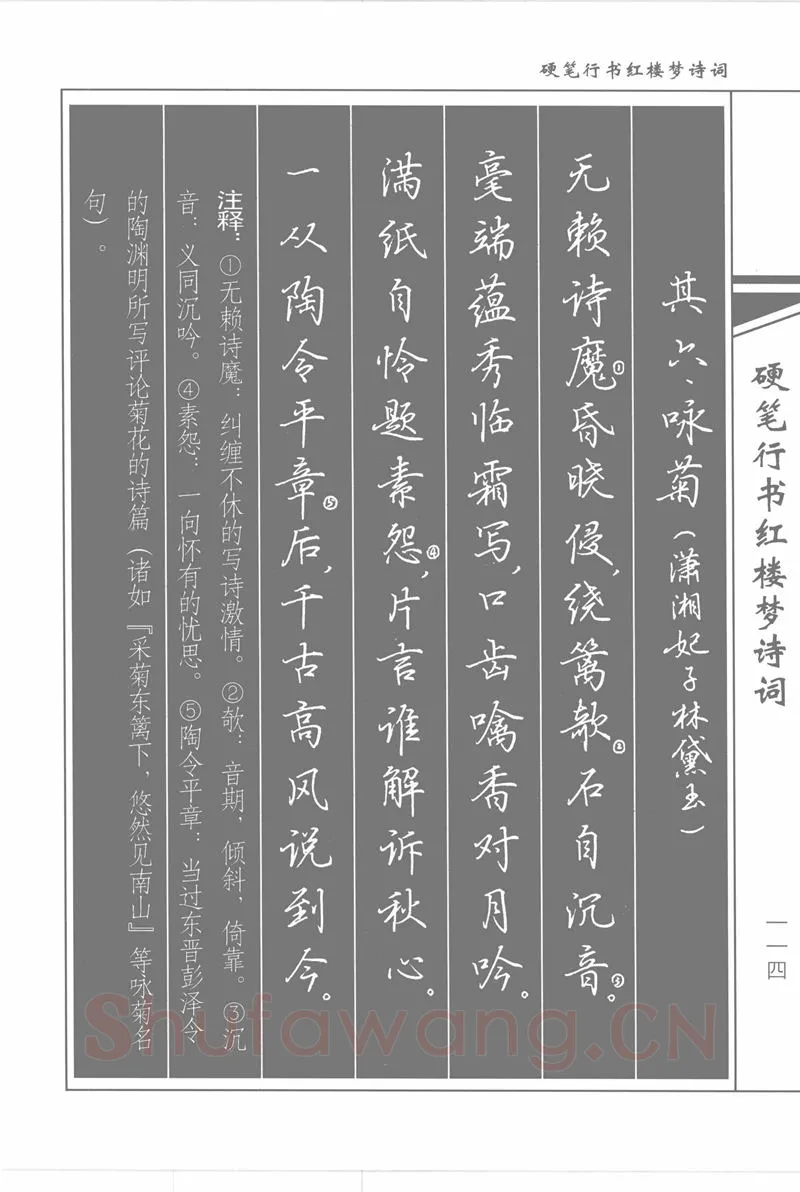 硬笔行书红楼梦诗词
其六、咏菊(潇湘妃子林黛玉)
无赖诗魔①昏晓侵,绕篱欹②石自沉音③。
毫端蕴秀临霜写,口齿噙香对月吟。
满纸自怜题素怨④,片言谁解诉秋心。
一从陶令平章⑤后,千古高风说到今。
注释:①无赖诗魔:纠缠不休的写诗激情。②欹:音期,倾斜,倚靠。③沉
音:义同沉吟。④素怨:一向怀有的忧思。⑤陶令平章:当过东晋彭泽令
的陶渊明所写评论菊花的诗篇(诸如『采菊东篱下,悠然见南山』等咏菊名
句)。
硬笔行书红楼梦诗词
一一四
Shufawang.CN